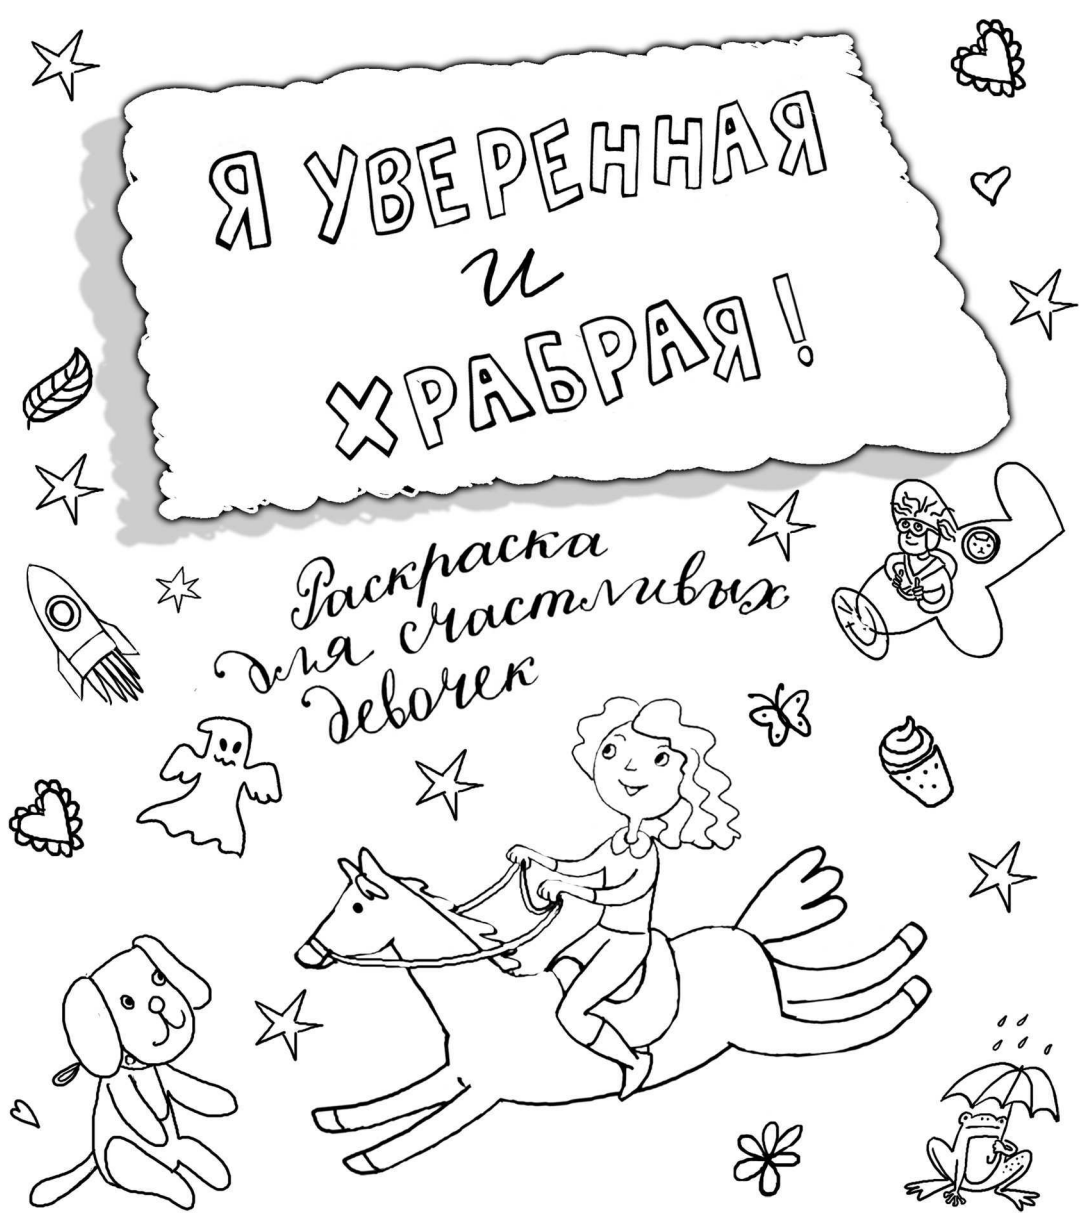 Я УВЕРЕННАЯ
и
ХРАБРАЯ!
Раскраска
для счастливых
девочек